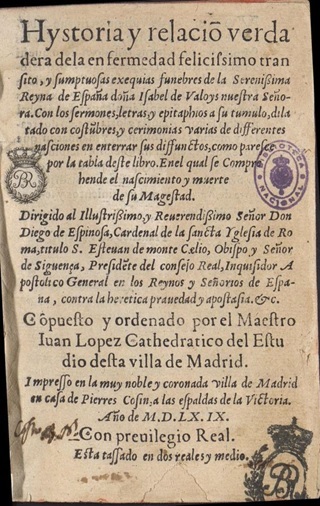 Hystoria y relaciõ verda
dera dela enfermedad felicissimo tran
sito, y sumptuosas exequias funebres de la Serenißima
Reyna de España doña Isabel de Valoys nuestra Seño-
ra. Con los sermones, letras y epitaphios a su tumulo, dila
tado con costũbres, y cerimonias varias de differentes
nasciones en enterrar sus diffunctos, como paresce
por la tabla deste libro. En el qual se Compre
hende el nascimiento y muerte
de su Magestad.
Dirigido al Illustrißimo, y Reuerendißimo Señor Don
Diego de Espinosa, Cardenal de la sancta Yglesia de Ro
ma, titulo S. Esteuan de monte Cælio, Obispo y Señor
de Siguença, Presidẽte del consejo Real, Inquisidor A
postolico General en los Reynos y Señorios de Espa-
na, contra la heretica prauedad y apostasia. &c.
Cõpuesto y ordenado por el Maestro
Iuan Lopez Cathedratico del Estu
dio desta villa de Madrid.
Impresso en la muy noble y coronada villa de Madrid
en casa de Pierres Cosin, a las espaldas de la Victoria.
Año de M.D.LX.IX.
Con preuilegio Real.
Esta tassado en dos reales y medio.
BIBLIOTECA
NACIONAL
BR
BR